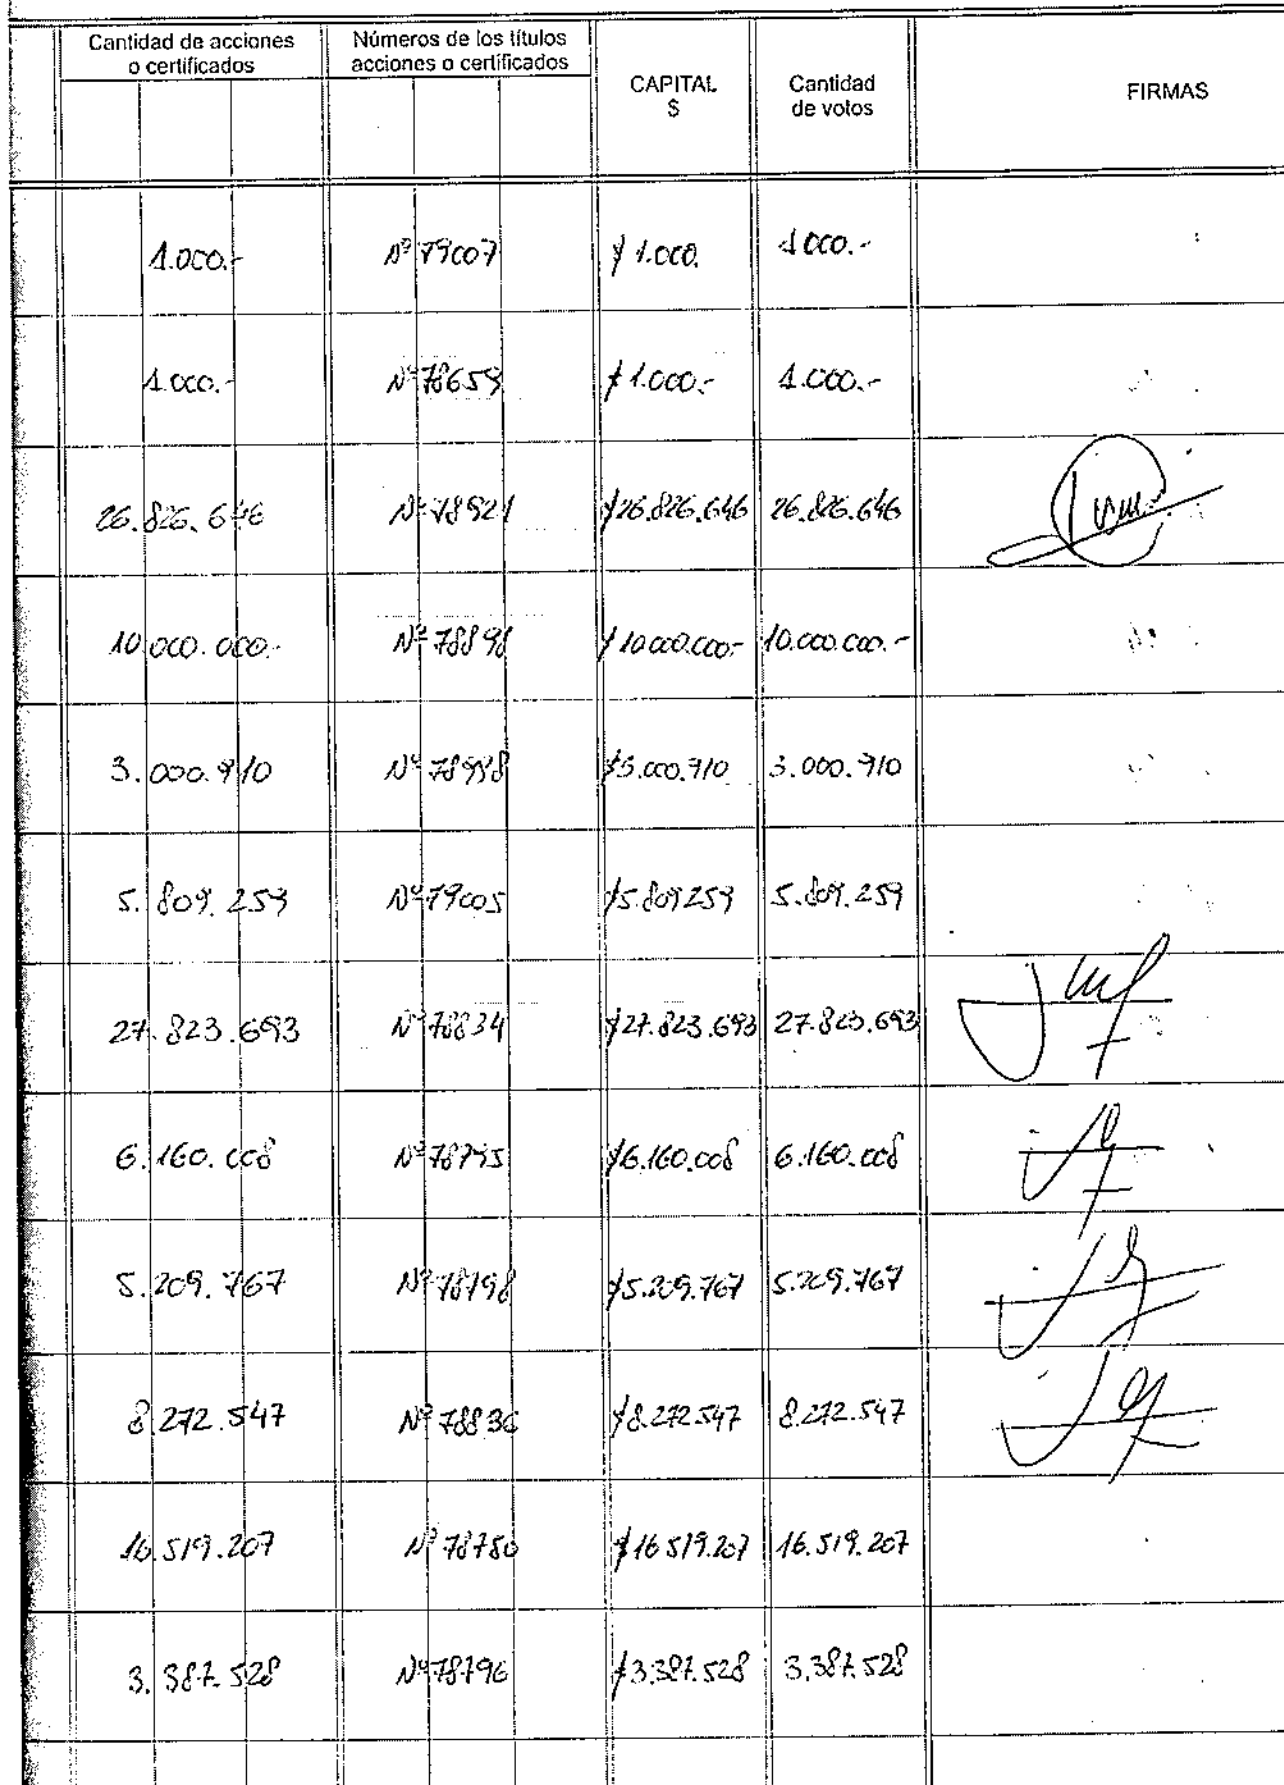 Cantidad de acciones o certificados
Números de los títulos acciones o certificados
CAPITAL $
Cantidad de votos
FIRMAS
1.000.- Nº 79007 $ 1.000. 1000.-
1.000.- Nº 78659 $ 1.000.- 1.000.-
26.826.646 Nº 78921 $26.826.646 26.826.646
10.000.000.- Nº 78898 $ 10.000.000.- 10.000.000.-
3.000.910 Nº $3.000.910 3.000.910
5.809.259 Nº 79005 $5.809259 5.809.259
27.823.693 Nº 78834 $27.823.693 27.823.693
6.160.008 Nº 78795 $6.160.008 6.160.008
5.209.767 Nº 78798 $5.209.767 5.209.767
8.272.547 Nº 78836 $8.272.547 8.272.547
16.519.207 Nº 78780 $16519.207 16.519.207
3.387.528 Nº 78796 $3.387.528 3.387.528